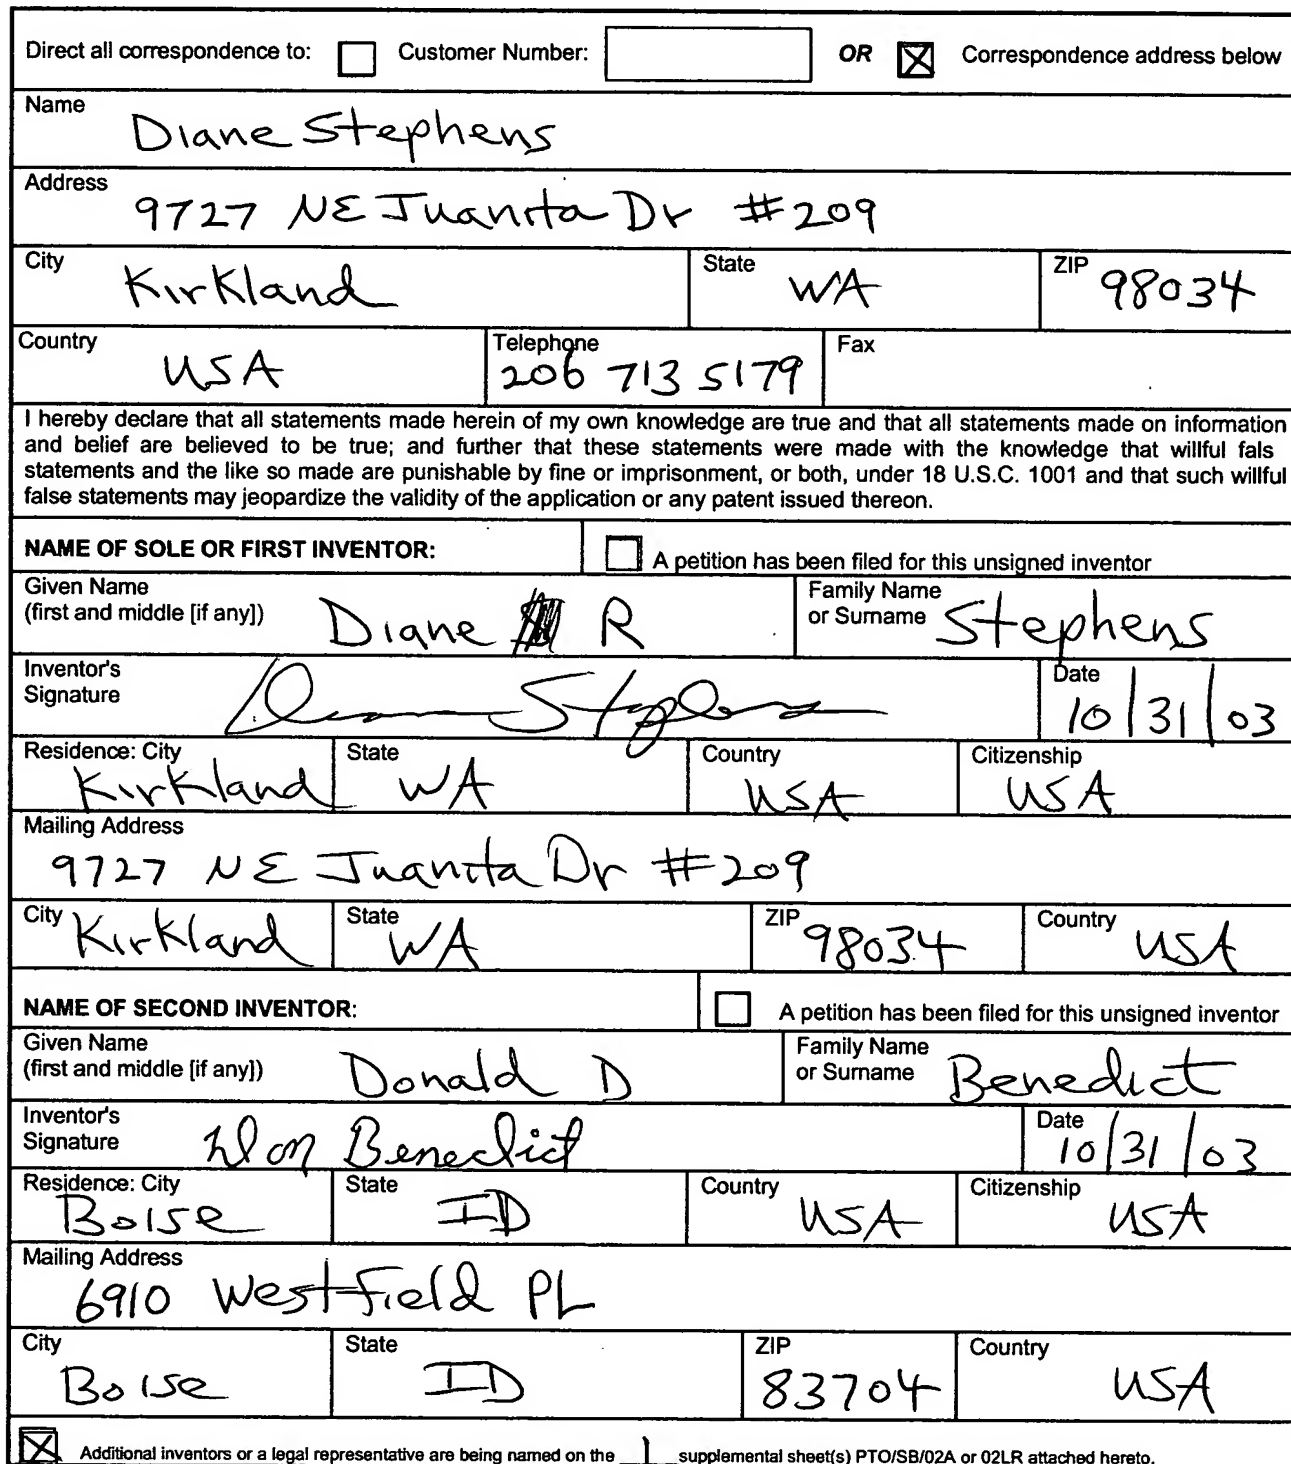 Direct all correspondence to: Customer Number: OR Correspondence address below
Name
Diane Stephens
Address
9727 NE Juanita Dr #209
City State ZIP
Kirkland WA 98034
Country Telephone Fax
USA 206 713 5179
I hereby declare that all statements made herein of my own knowledge are true and that all statements made on information
and belief are believed to be true; and further that these statements were made with the knowledge that willful fals
statements and the like so made are punishable by fine or imprisonment, or both, under 18 U.S.C. 1001 and that such willful
false statements may jeopardize the validity of the application or any patent issued thereon.
NAME OF SOLE OR FIRST INVENTOR: A petition has been filed for this unsigned inventor
Given Name Family Name
(first and middle [if any]) Diane R or Surname Stephens
Inventor's Date
Signature Diane Stephens 10/31/03
Residence: City State Country Citizenship
Kirkland WA USA USA
Mailing Address
9727 NE Juanita Dr #209
City Kirkland State WA ZIP 98034 Country USA
NAME OF SECOND INVENTOR: A petition has been filed for this unsigned inventor
Given Name Family Name
(first and middle [if any]) Donald D or Surname Benedict
Inventor's Date
Signature Don Benedict 10/31/03
Residence: City State Country Citizenship
Boise ID USA USA
Mailing Address
6910 Westfield PL
City State ZIP Country
Boise ID 83704 USA
Additional inventors or a legal representative are being named on the 1 supplemental sheet(s) PTO/SB/02A or 02LR attached hereto.